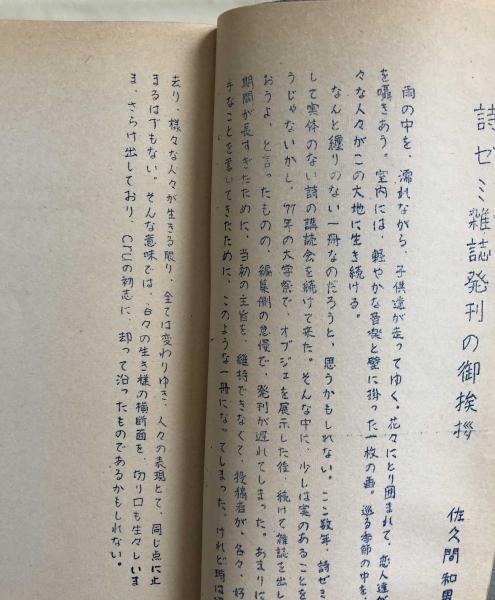 詩ゼミ雑誌発刊の御挨拶
佐久間和男
雨の中を、濡れながら、子供達が走ってゆく。花々にとり囲まれて、恋人達が
を囁きあう。室内には、軽やかな音楽と壁に掛った一枚の画。巡る季節の中を
々な人々がこの大地に生き続ける。
なんと纏りのない一冊なのだろうと、思うかもしれない。ここ数年、詩ゼミ
して実体のない詩の講読会を続けて来た。そんな中に、少しは実のあることを
うじゃないかし、'77年の大学祭で、オブジェを展示した後、続けて雑誌を出し
おうよ、と言ったものの、編集側の怠慢で、発刊が遅れてしまった。あまりに
期間が長すぎたために、当初の主旨を、維持できなくて、投稿者が、各々、好
手なことを書いてきたために、このような一冊になってしまった。けれど時は
去り、様々な人々が生きる限り、全ては変わりゆき、人々の表現とて、同じ点に止
まるはずもない。そんな意味では、各々の生き様の横断面を、切り口も生々しいま
ま、さらけ出しており、CrUの初志に、却って沿ったものであるかもしれない。